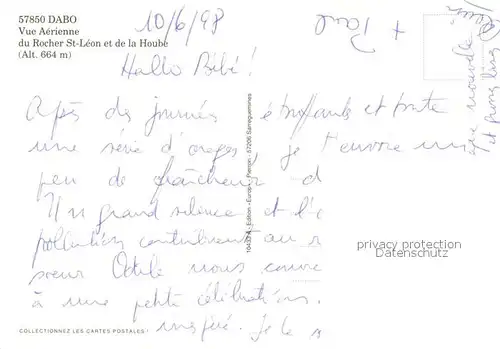 57850 DABO
Vue Aérienne
du Rocher St-Léon et de la Houbé
(Alt. 664 m)
10/6/98
Hallo Bébé!
+ Paul
Après des journées étouffantes et toute
une série d'orages, je t'envoie un
peu de fraîcheur d
Un grand silence et l'
pollution contribuent au r
sœur Odile nous convie
à une petite célébration.
inspiré. Je le
une nouvelle
et
10433 A - Edition «Europ» Pierron - 57206 Sarreguemines
privacy protection
Datenschutz
COLLECTIONNEZ LES CARTES POSTALES !